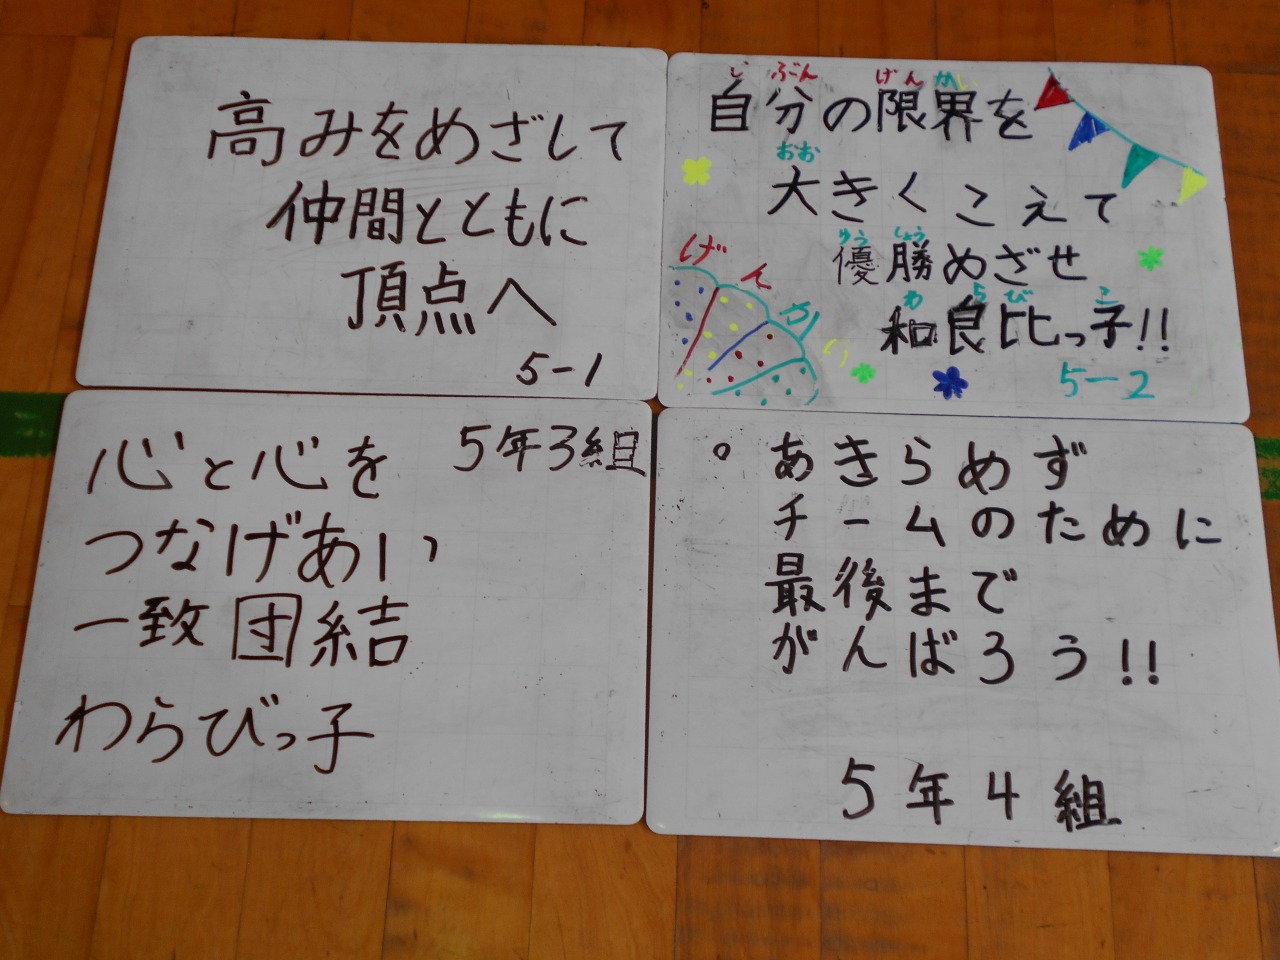 高みをめざして
仲間とともに
頂点へ
5-1
じ ぶん げん かい
自分の限界を
おお
大きくこえて
ゆう しょう
優勝めざせ
わ ら び こ
和良比っ子!!
5-2
げんかい
5年3組
心と心を
つなげあい
一致団結
わらびっ子
。あきらめず
チームのために
最後まで
がんばろう!!
5年4組